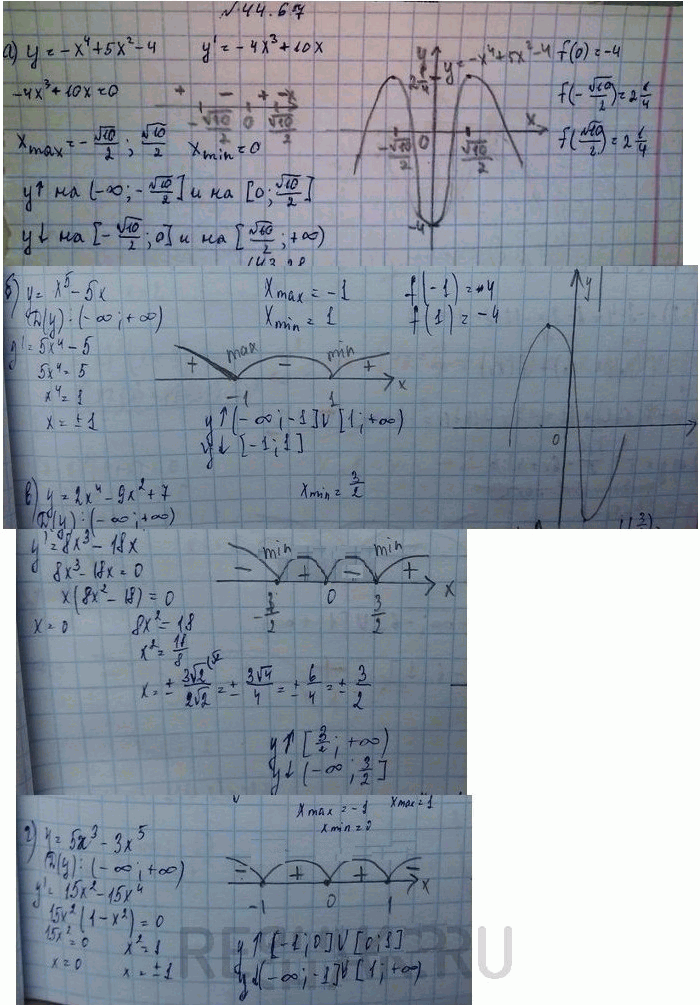 №44.67
а) y = -x⁴+5x²-4   y' = -4x³+10x
-4x³+10x=0
+ - + -x
-√10/2 0 √10/2
x max = -√10/2 ; √10/2   x min = 0
y↑ на (-∞; -√10/2] и на [0; √10/2]
y↓ на [-√10/2; 0] и на [√10/2; +∞)
y
y=-x⁴+5x²-4
2 1/4
x
-√10/2 0 √10/2
-4
f(0) = -4
f(-√10/2) = 2 1/4
f(√10/2) = 2 1/4
б) y = x⁵-5x
D(y): (-∞; +∞)
y' = 5x⁴-5
5x⁴=5
x⁴=1
x = ±1
x max = -1   f(-1) = 4
x min = 1   f(1) = -4
max min
+ - + x
-1 1
y↑ (-∞; -1] ∪ [1; +∞)
y↓ [-1; 1]
y
0
в) y = 2x⁴-9x²+7
D(y): (-∞; +∞)
x min = 3/2
y' = 8x³-18x
8x³-18x=0
x(8x²-18)=0
x=0   8x²=18
x² = 18/8
x = ± 3√2/2√2 (√2 = ± 3√4/4 = ± 6/4 = ± 3/2
min min
- + - + x
-3/2 0 3/2
y↑ [3/2; +∞)
y↓ (-∞; 3/2]
x max = -1   x max = 1
x min = 0
г) y = 5x³-3x⁵
D(y): (-∞; +∞)
y' = 15x²-15x⁴
15x²(1-x²)=0
15x²=0   x²=1
x=0   x=±1
- + + - x
-1 0 1
y↑ [-1; 0] ∪ [0; 1]
y↓ (-∞; -1] ∪ [1; +∞)